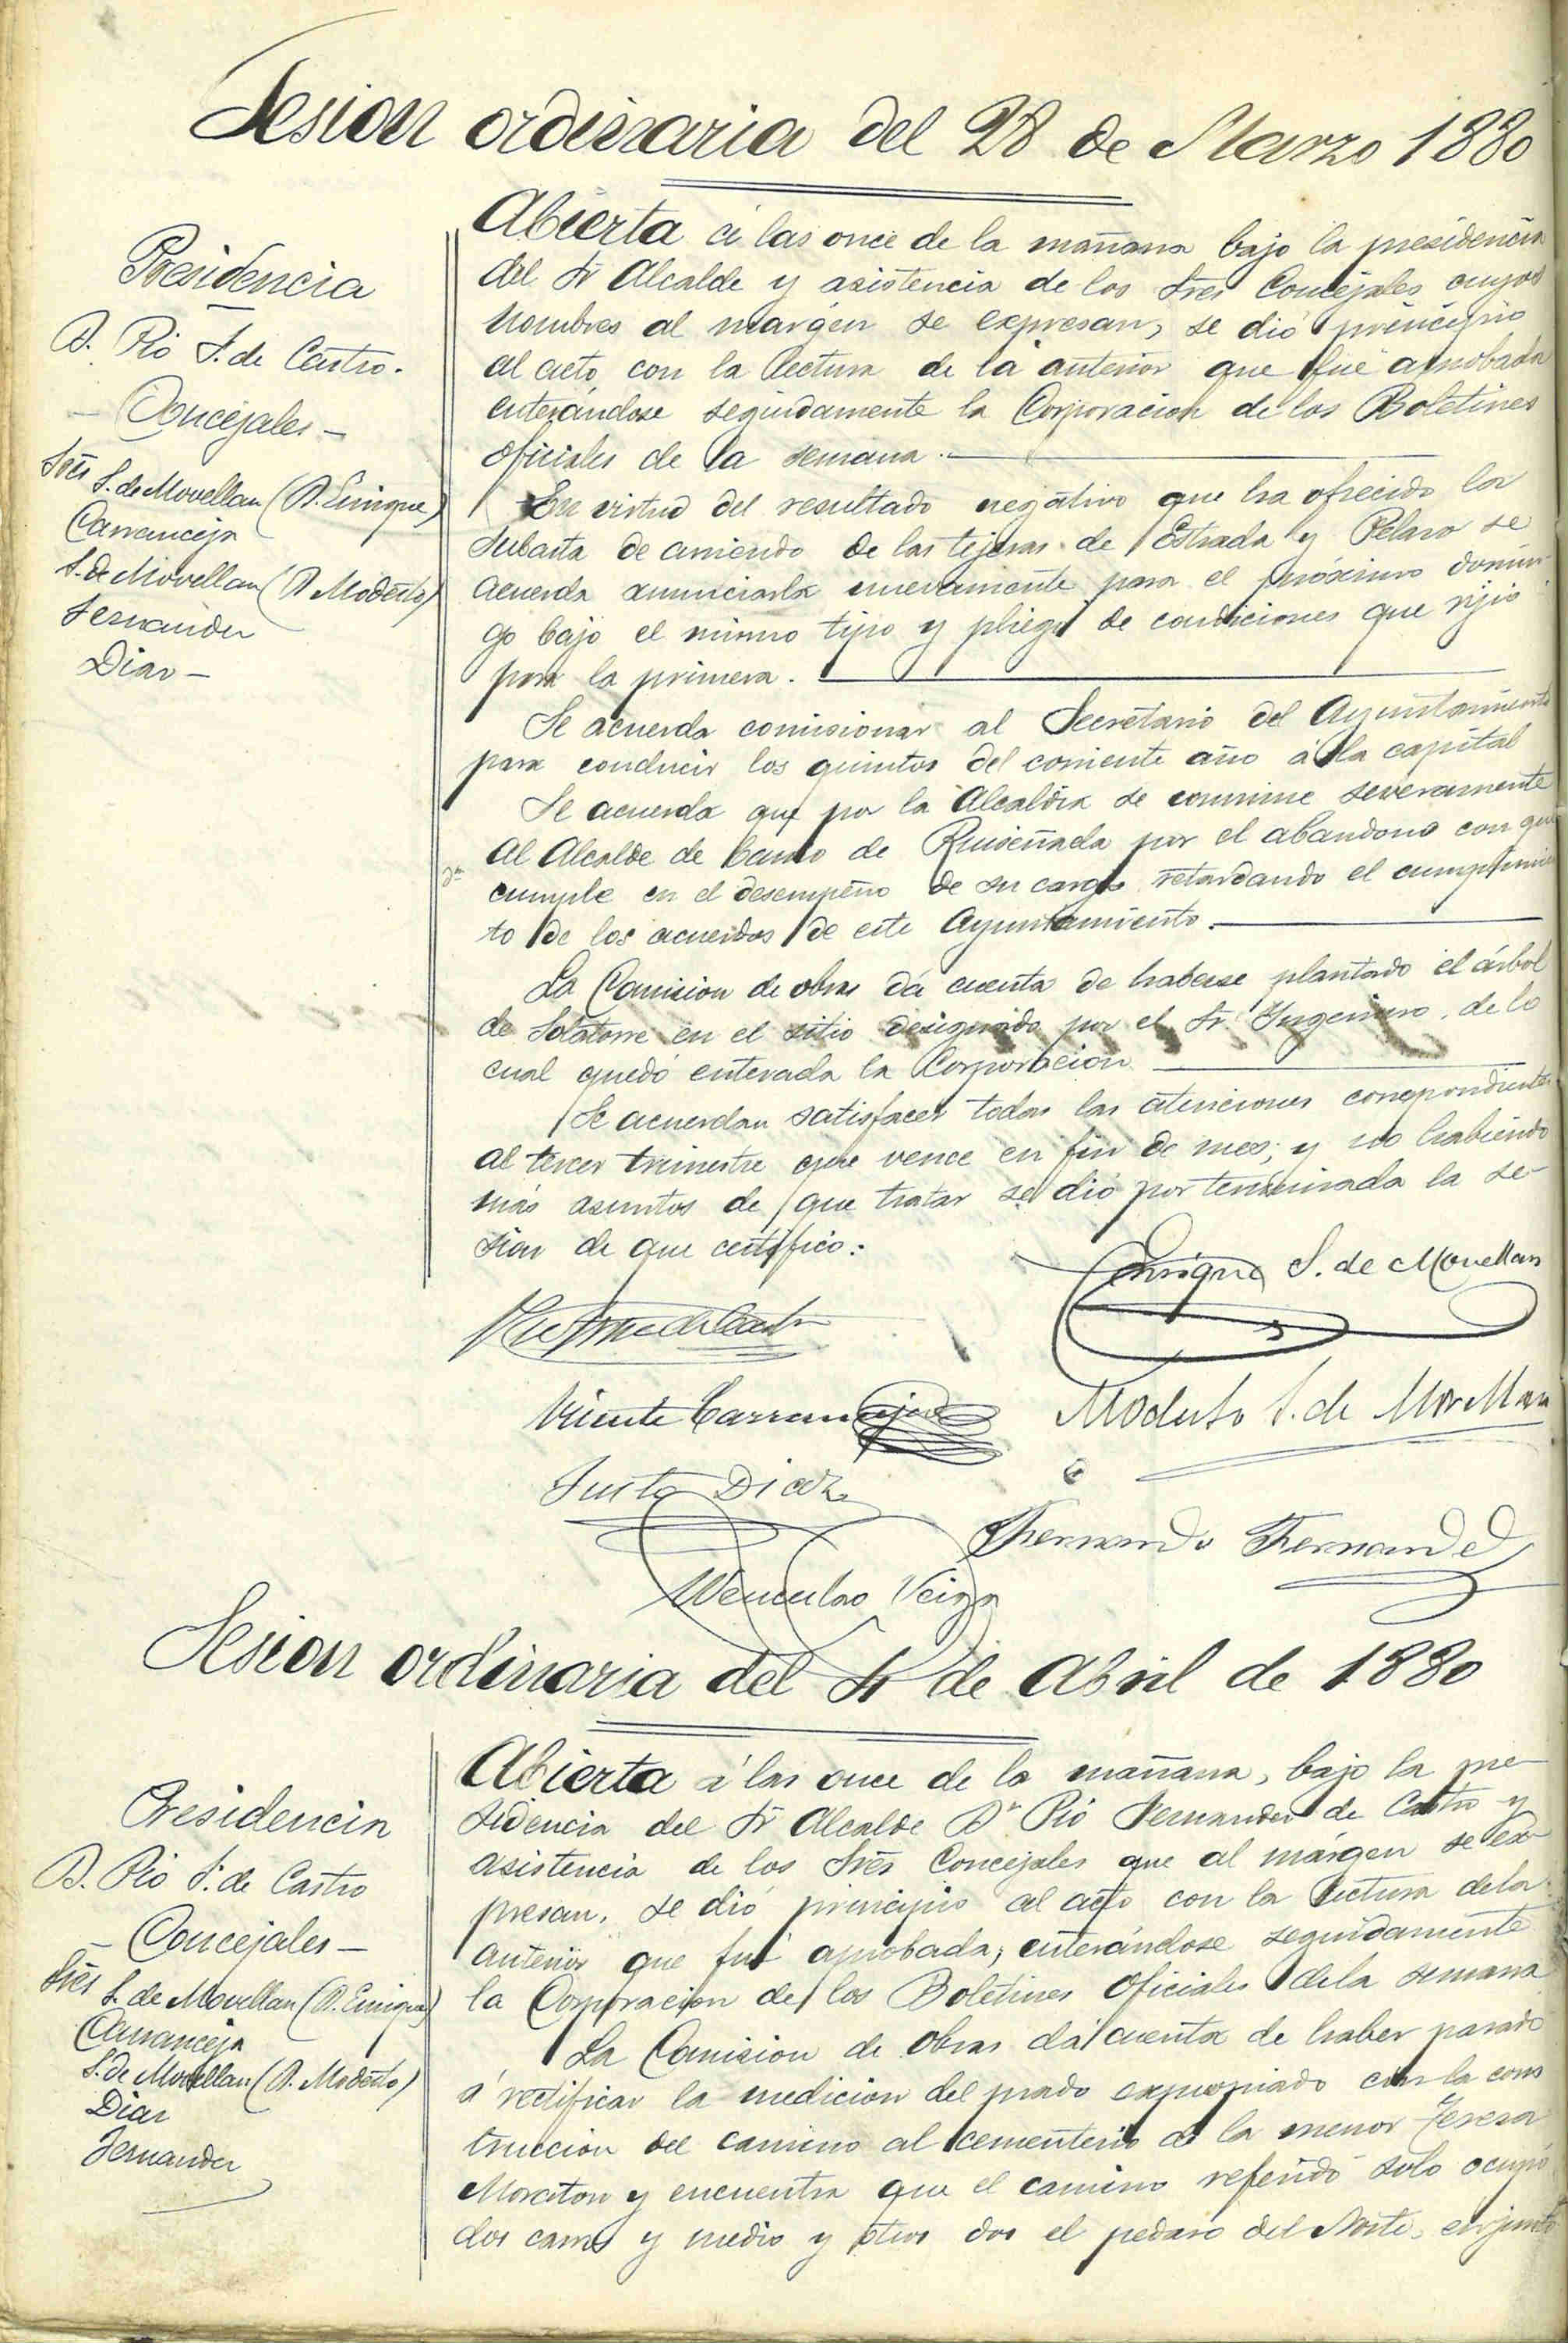 Sesion ordinaria del 28 de Marzo 1880
Presidencia
D. Pio F. de Castro.
— Concejales —
Sres S. de Movellan (D. Enrique)
Carranceja
S. de Movellan (D. Modesto)
Fernandez
Diaz —
Abierta á las once de la mañana bajo la presidencia
del Sr Alcalde y asistencia de los Sres Concejales cuyos
nombres al margen se expresan, se dió principio
al acto con la lectura de la anterior que fué aprobada
enterándose seguidamente la Corporacion de los Boletines
oficiales de la semana.
En virtud del resultado negativo que ha ofrecido la
subasta de arriendo de las tejeras de Estrada y Pelazo se
acuerda anunciarla nuevamente para el próximo domin-
go bajo el mismo tipo y pliego de condiciones que rijió
para la primera.
Se acuerda comisionar al Secretario del Ayuntamiento
para conducir los quintos del corriente año á la capital
Se acuerda que por la Alcaldia se conmine severamente
al Alcalde de barrio de Ruiseñada por el abandono con que
cumple en el desempeño de su cargo retardando el cumplimien
to de los acuerdos de este Ayuntamiento.
La Comision de obras dá cuenta de haberse plantado el árbol
de Solatorre en el sitio designado por el Sr Ingeniero, de lo
cual quedó enterada la Corporacion
Se acuerdan satisfacer todas las atenciones correpondientes
al tercer trimestre que vence en fin de mes; y no habiendo
más asuntos de que tratar se dió por terminada la se-
sion de que certifico:
Enrique S. de Movellan
Vicente Carranceja
Modesto S. de Movellan
Justo Diaz
Fernando Fernandez
Wenceslao Veiga
Sesion ordinaria del 4 de Abril de 1880
Presidencia
D. Pio F. de Castro
— Concejales —
Sres S. de Movellan (D. Enrique)
Carranceja
S. de Movellan (D. Modesto)
Diaz
Fernandez
Abierta á las once de la mañana, bajo la pre-
sidencia del Sr Alcalde Dn Pio Fernandez de Castro y
asistencia de los Sres Concejales que al márgen se ex-
presan, se dió principio al acto con la lectura de la
anterior que fué aprobada; enterándose seguidamente
la Corporacion de los Boletines oficiales de la semana
La Comision de obras dá cuenta de haber pasado
á rectificar la medicion del prado expropiado con la cons
truccion del camino al cementerio á la menor Teresa
Moraton y encuentra que el camino referido solo ocupó
dos carros y medio y otros dos el pedazo del Norte, en junto